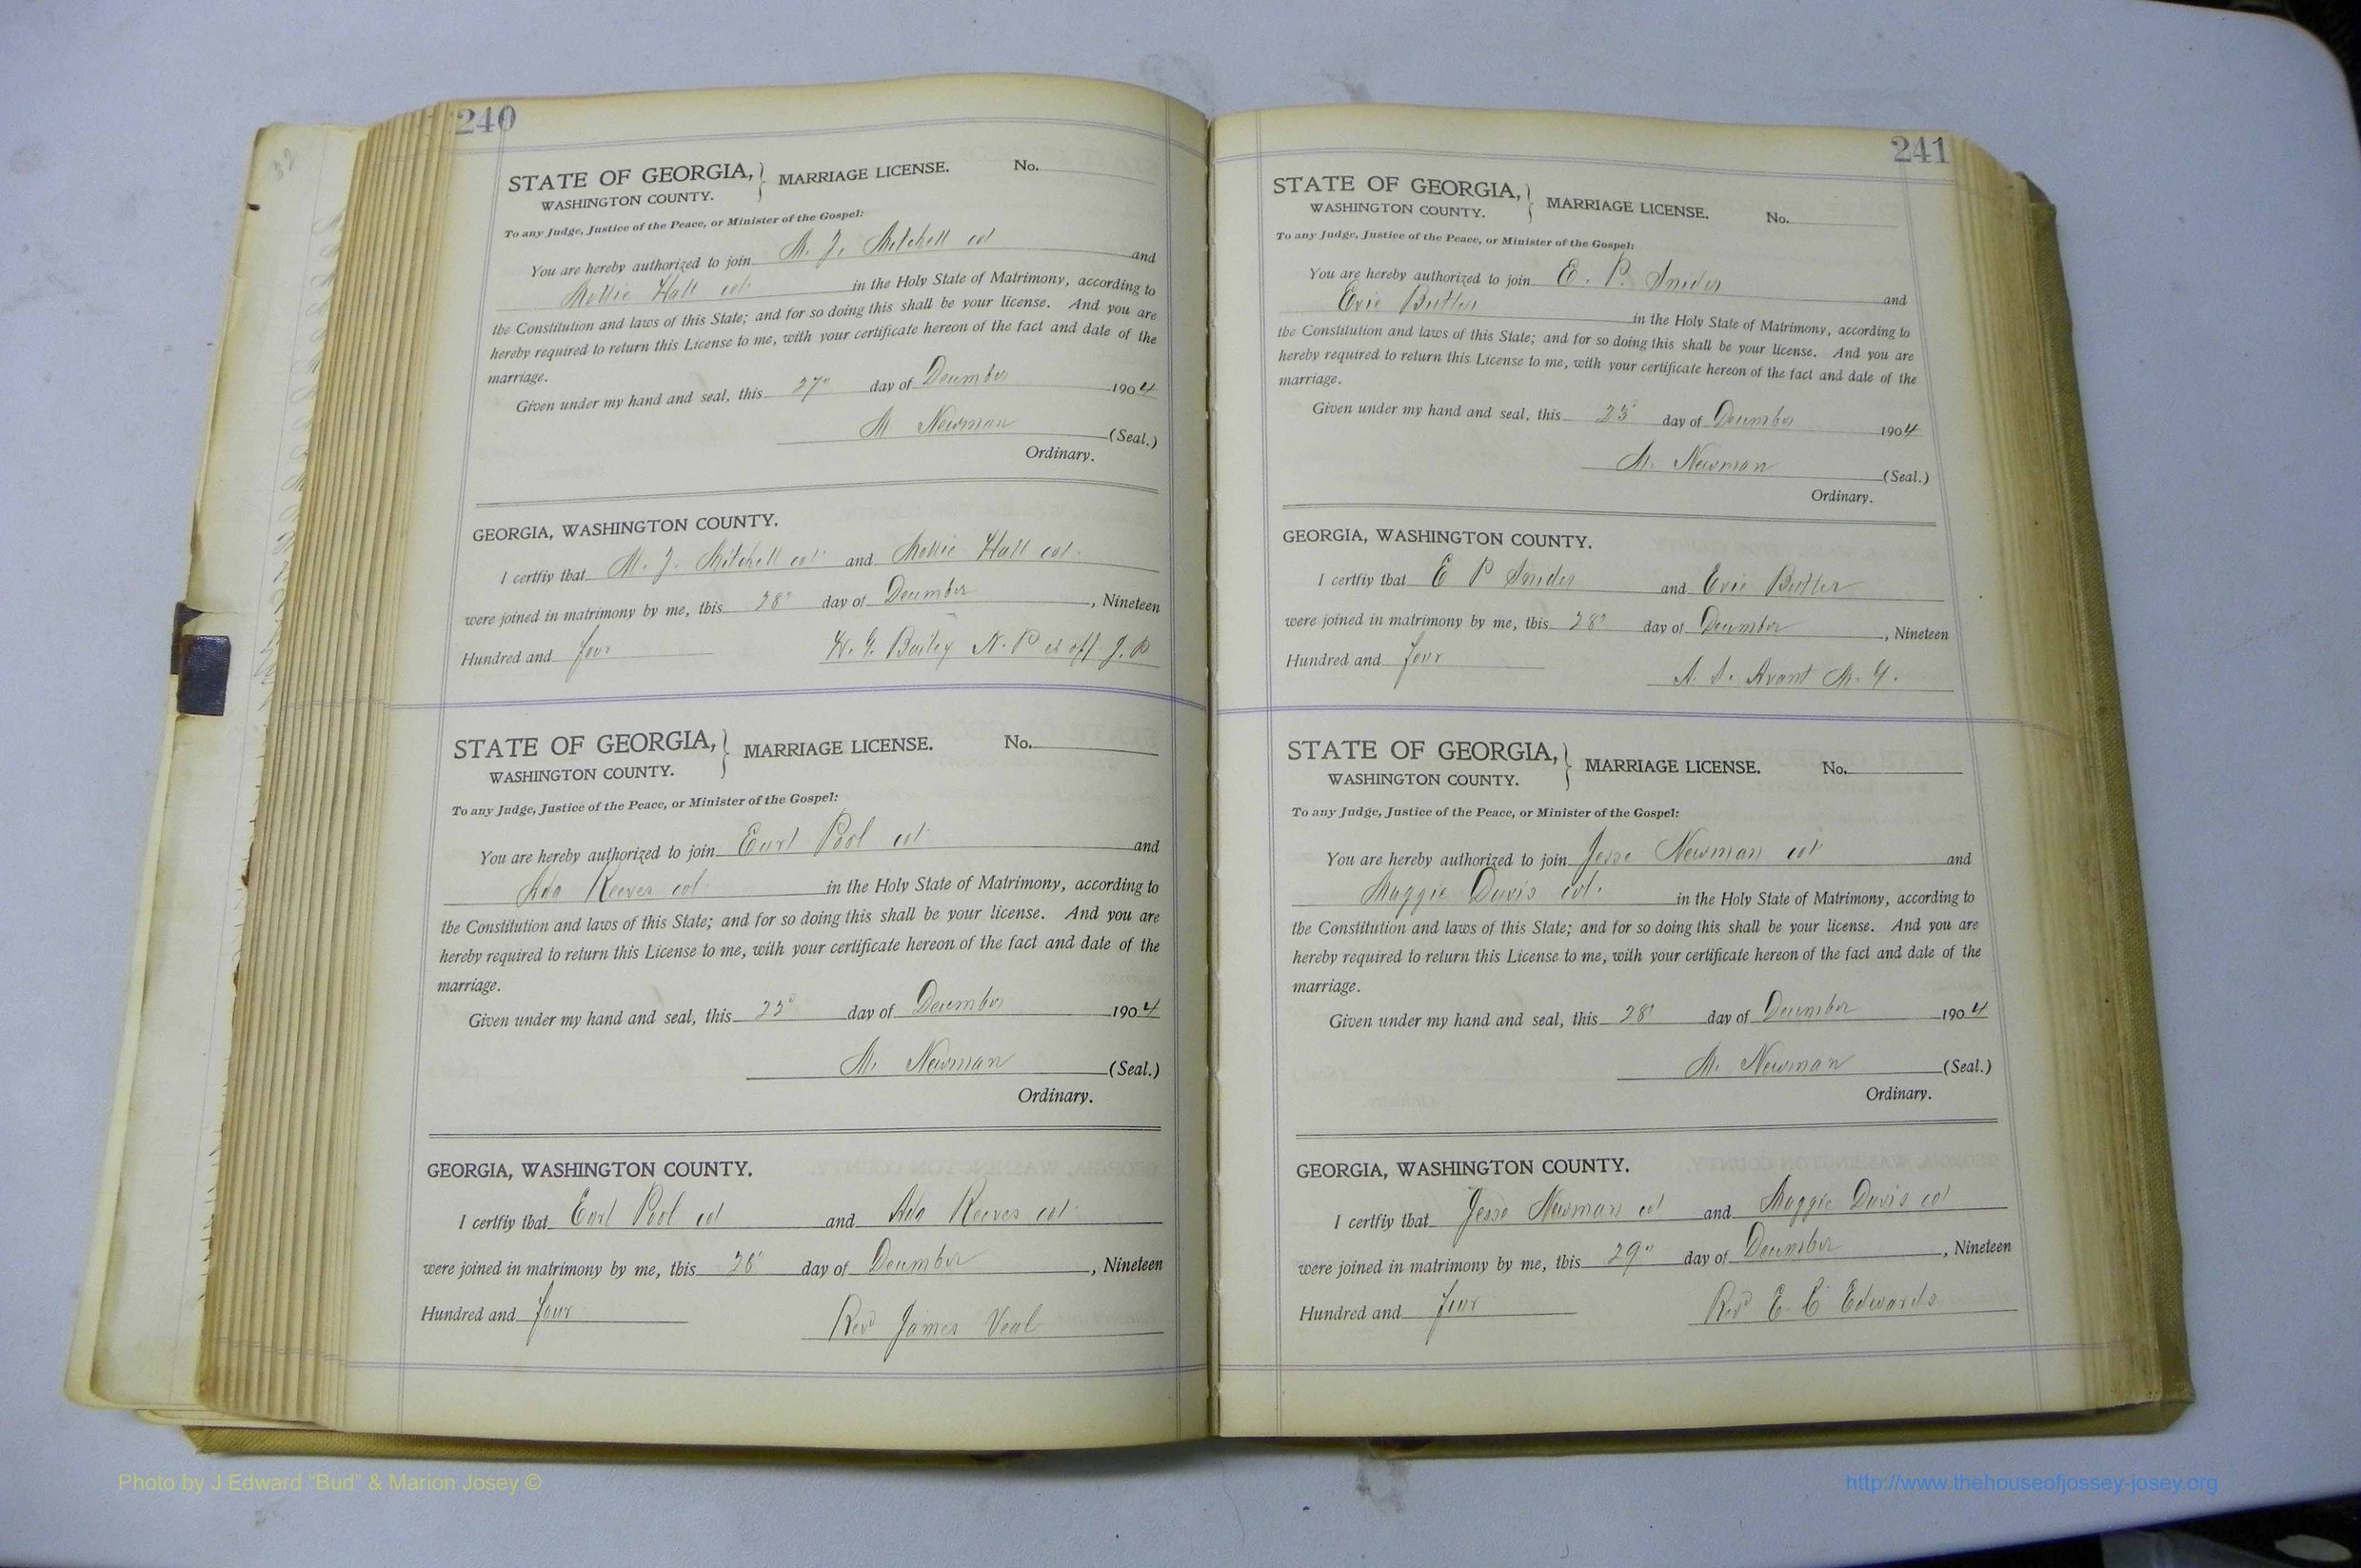 240
STATE OF GEORGIA, } MARRIAGE LICENSE. No.
WASHINGTON COUNTY.
To any Judge, Justice of the Peace, or Minister of the Gospel:
You are hereby authorized to join M. J. Mitchell col and
Mollie Hall col in the Holy State of Matrimony, according to
the Constitution and laws of this State; and for so doing this shall be your license. And you are
hereby required to return this License to me, with your certificate hereon of the fact and date of the
marriage.
Given under my hand and seal, this 27" day of December 1904
M Newman (Seal.)
Ordinary.
GEORGIA, WASHINGTON COUNTY.
I certfiy that M. J. Mitchell col and Mollie Hall col.
were joined in matrimony by me, this 28" day of December, Nineteen
Hundred and four Bailey N. P ex off J. P
STATE OF GEORGIA, } MARRIAGE LICENSE. No.
WASHINGTON COUNTY.
To any Judge, Justice of the Peace, or Minister of the Gospel:
You are hereby authorized to join Earl Pool col and
Ada Reeves col in the Holy State of Matrimony, according to
the Constitution and laws of this State; and for so doing this shall be your license. And you are
hereby required to return this License to me, with your certificate hereon of the fact and date of the
marriage.
Given under my hand and seal, this day of December 1904
M. Newman (Seal.)
Ordinary.
GEORGIA, WASHINGTON COUNTY.
I certfiy that Earl Pool col and Ada Reeves col
were joined in matrimony by me, this day of December, Nineteen
Hundred and four Rev James Veal
241
STATE OF GEORGIA, } MARRIAGE LICENSE. No.
WASHINGTON COUNTY.
To any Judge, Justice of the Peace, or Minister of the Gospel:
You are hereby authorized to join E. P. Snider and
Evie Butler in the Holy State of Matrimony, according to
the Constitution and laws of this State; and for so doing this shall be your license. And you are
hereby required to return this License to me, with your certificate hereon of the fact and date of the
marriage.
Given under my hand and seal, this day of December 1904
M. Newman (Seal.)
Ordinary.
GEORGIA, WASHINGTON COUNTY.
I certfiy that E P Snider and Evie Butler
were joined in matrimony by me, this 28" day of December, Nineteen
Hundred and four Avant M. G.
STATE OF GEORGIA, } MARRIAGE LICENSE. No.
WASHINGTON COUNTY.
To any Judge, Justice of the Peace, or Minister of the Gospel:
You are hereby authorized to join Jesse Newman col and
Maggie Davis col. in the Holy State of Matrimony, according to
the Constitution and laws of this State; and for so doing this shall be your license. And you are
hereby required to return this License to me, with your certificate hereon of the fact and date of the
marriage.
Given under my hand and seal, this 28" day of December 1904
M. Newman (Seal.)
Ordinary.
GEORGIA, WASHINGTON COUNTY.
I certfiy that Jesse Newman col and Maggie Davis col
were joined in matrimony by me, this 29" day of December, Nineteen
Hundred and four Rev E C Edwards
Photo by J Edward "Bud" & Marion Josey ©
http://www.thehouseofjossey-josey.org